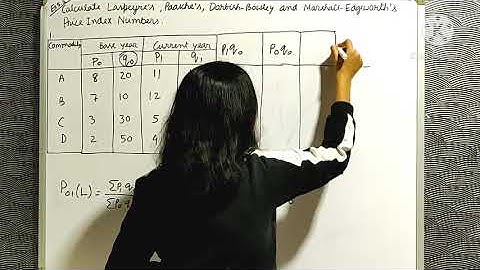 Calculate Laspeyre's, Paasche's, Dorbish-Bowley and Marshall-Edgeworth's
Price Index Numbers.
Commodity Base year Current year p₁q₀ p₀q₀
p₀ q₀ p₁ q₁
A 8 20 11
B 7 10 12
C 3 30 5
D 2 50 4
P₀₁(L) = Σp₁q
Σp₀q